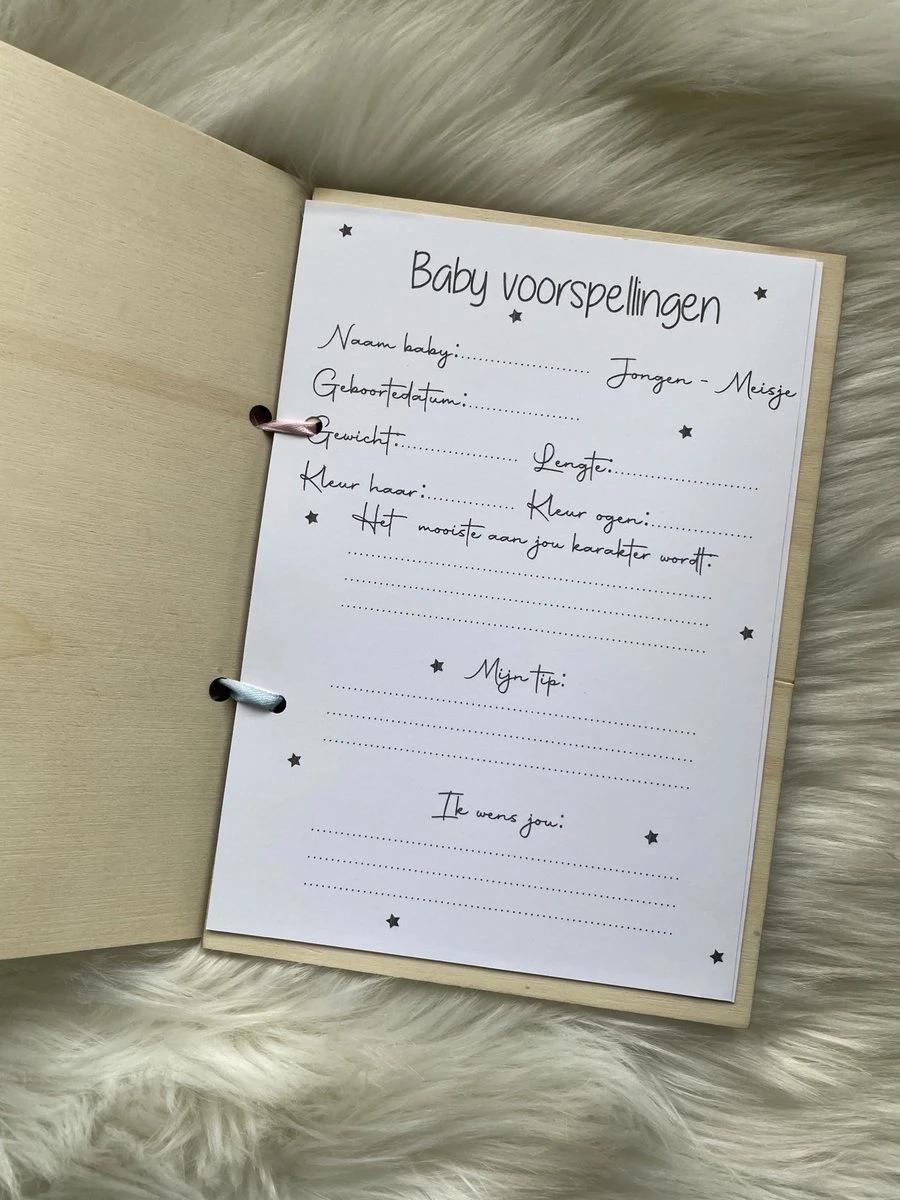 Baby voorspellingen
Naam baby:.................... Jongen - Meisje
Geboortedatum:....................
Gewicht:.................... Lengte:....................
Kleur haar:.................... Kleur ogen:....................
Het mooiste aan jou karakter wordt:
Mijn tip:
Ik wens jou: